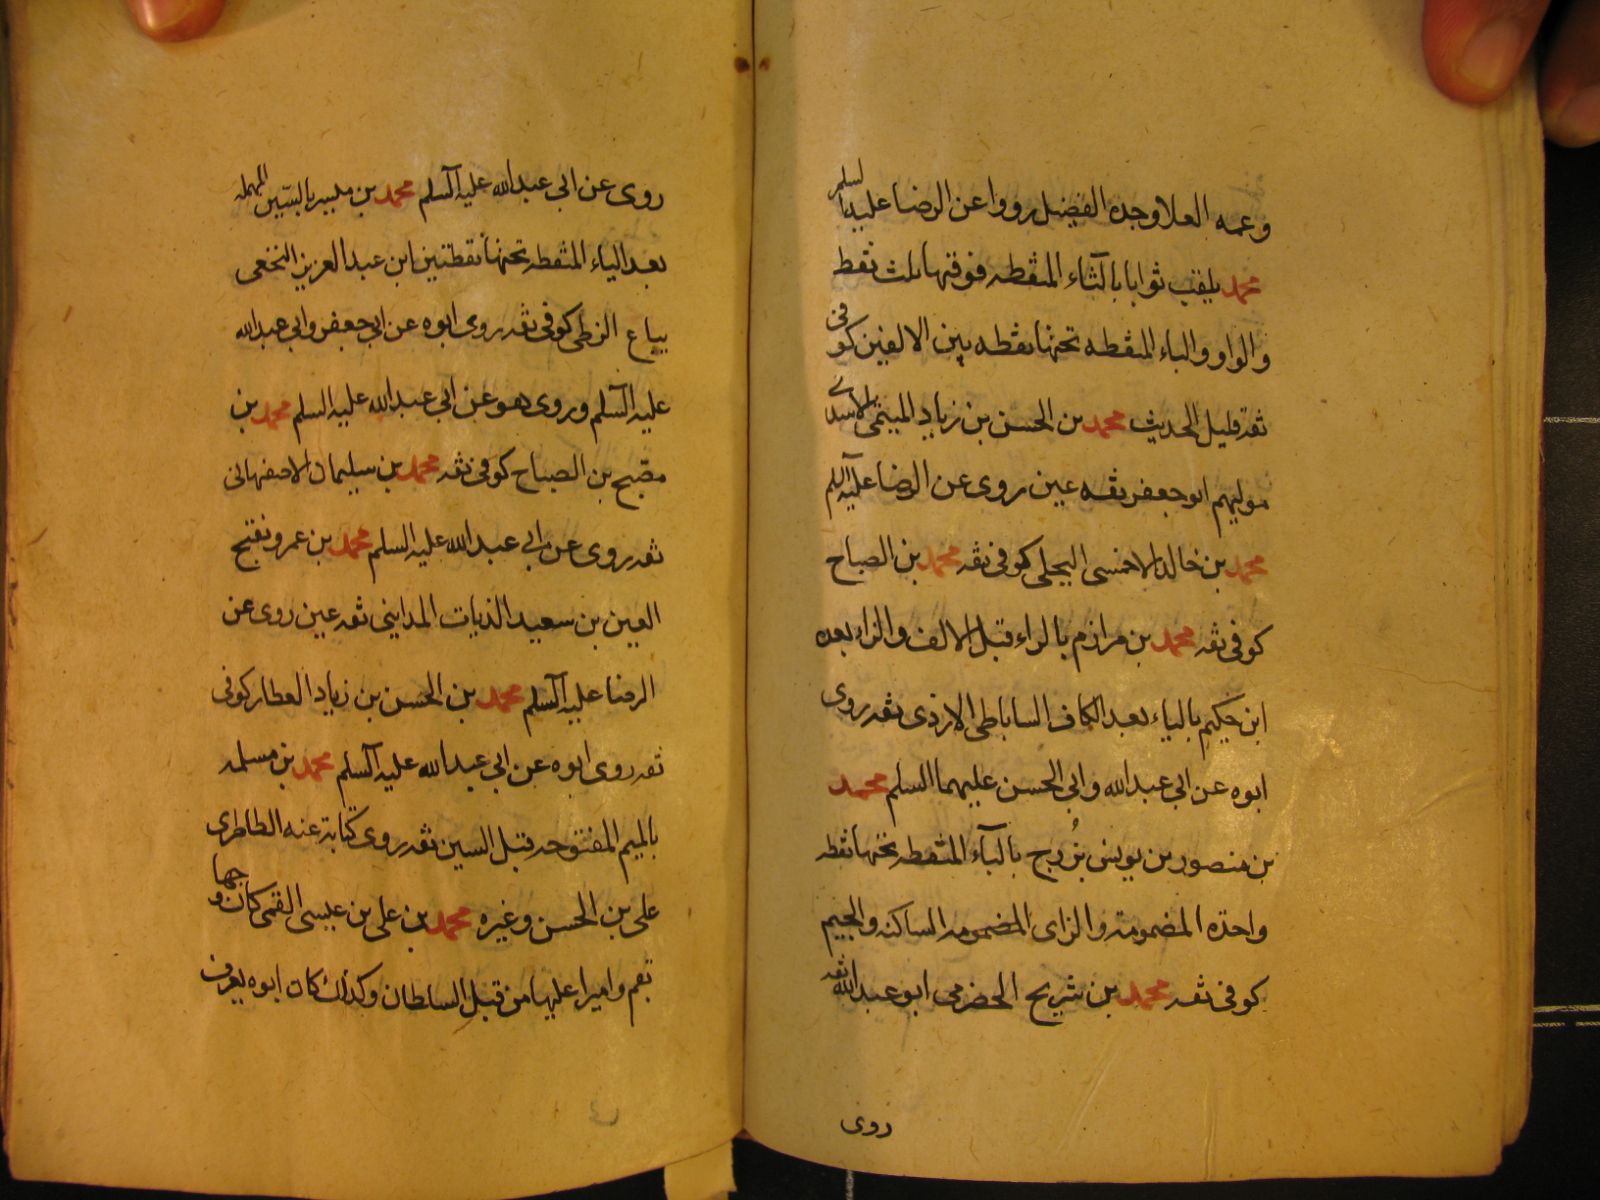 وعمه العلا وجده الفضيل رووا عن الرضا عليه السلم
محمد يلقب ثوابا بالثاء المنقطه فوقها ثلث نقط
والواو والباء المنقطه تحتها نقطه بين الالفين كوفى
ثقه قليل الحديث محمد بن الحسن بن زياد الميثمى الاسدى
موليهم ابو جعفر ثقه عين روى عن الرضا عليه السلم
محمد بن خالد الاحمسى البجلى كوفى ثقه محمد بن الصباح
كوفى ثقه محمد بن مرازم بالراء قبل الالف والزاء بعده
ابن حكيم بالياء بعد الكاف الساباطى الازدى ثقه روى
ابوه عن ابى عبدالله وابى الحسن عليهما السلم محمد
بن منصور بن يونس بزرج بالباء المنقطه تحتها نقطه
واحده المضمومة والزاى المضمومه الساكنه والجيم
كوفى ثقه محمد بن شريح الحضرمى ابو عبدالله ثقه
روى
روى عن ابى عبدالله عليه السلم محمد بن ميسر بالسين المهمله
بعد الياء المنقطه تحتها نقطتين ابن عبد العزيز النخعى
بياع الزطى كوفى ثقه روى ابوه عن ابى جعفر وابى عبدالله
عليه السلم وروى هو عن ابى عبدالله عليه السلم محمد بن
مصبح بن الصباح كوفى ثقه محمد بن سليمان الاصفهانى
ثقه روى عن ابى عبدالله عليه السلم محمد بن عمرو بفتح
العين بن سعيد الذيات المداينى ثقه عين روى عن
الرضا عليه السلم محمد بن الحسن بن زياد العطار كوفى
ثقه روى ابوه عن ابى عبدالله عليه السلم محمد بن مسلمه
بالميم المفتوحه قبل السين ثقه روى كتابه عنه الطاطرى
على بن الحسن وغيره محمد بن على بن عيسى القمى كان وجها
بقم واميرا عليها من قبل السلطان وكذلك كان ابوه يعرف